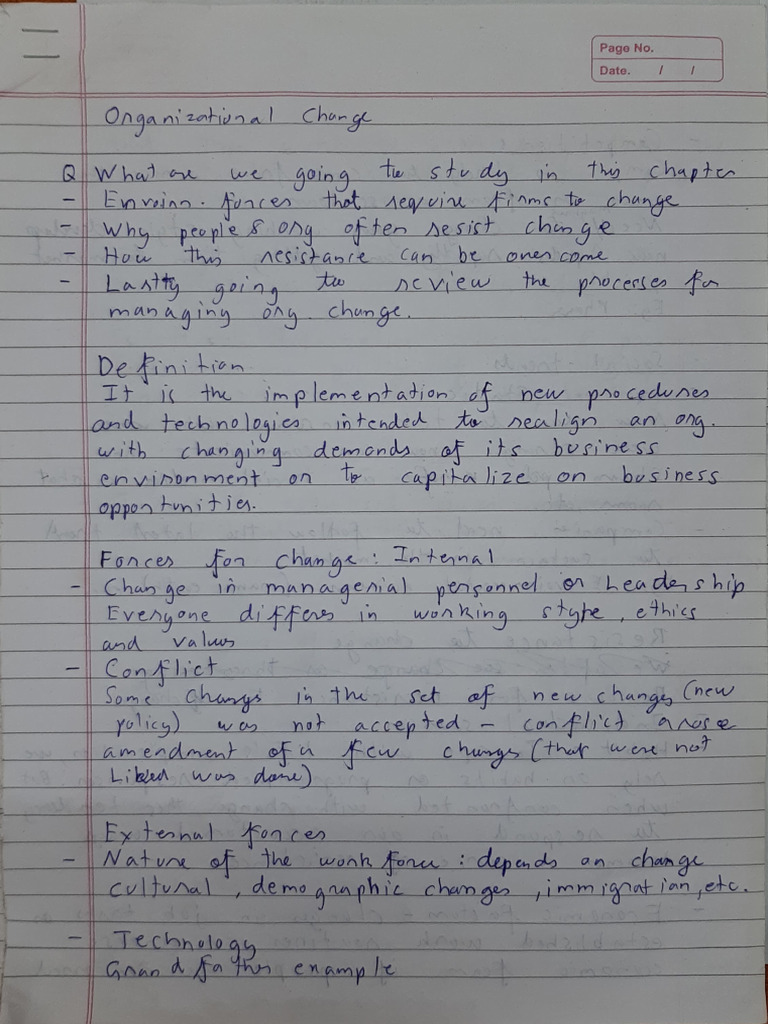 Page No.
Date. / /
Organizational Change
Q What are we going to study in this chapter
- Environ. forces that require firms to change
- Why people & org often resist change
- How this resistance can be overcome
- Lastly going to review the processes for
managing org. change.
Definition
It is the implementation of new procedures
and technologies intended to realign an org.
with changing demands of its business
environment or to capitalize on business
opportunities.
Forces for change : Internal
- Change in managerial personnel or Leadership
Everyone differs in working style, ethics
and values
- Conflict
Some changs in the set of new changes (new
policy) was not accepted - conflict arose
amendment of a few changes (that were not
Liked was done)
External forces
- Nature of the work force : depends on change
cultural, demographic changes, immigration, etc.
- Technology
Grand father example